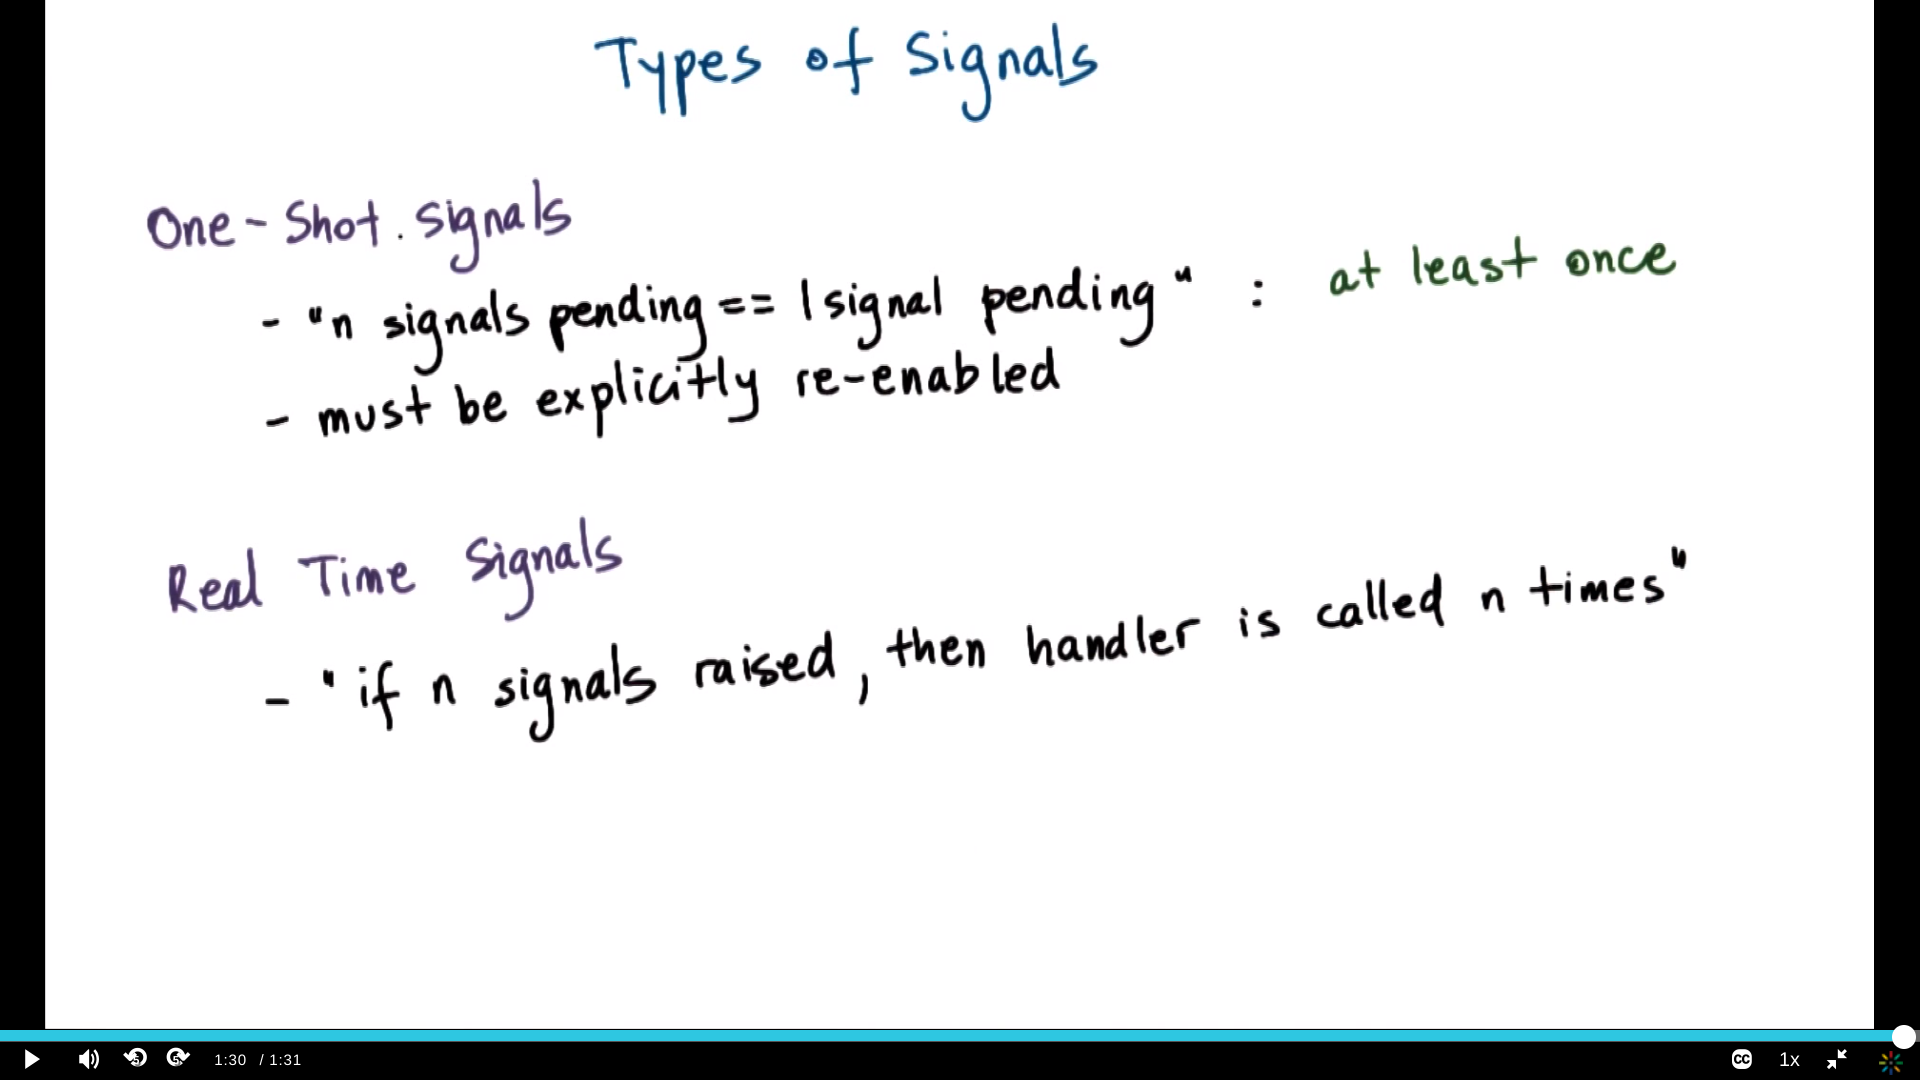 Types of Signals
One-Shot. Signals
- "n signals pending == 1 signal pending" : at least once
- must be explicitly re-enabled
Real Time Signals
- "if n signals raised, then handler is called n times"
5 5 1:30 / 1:31 CC 1x